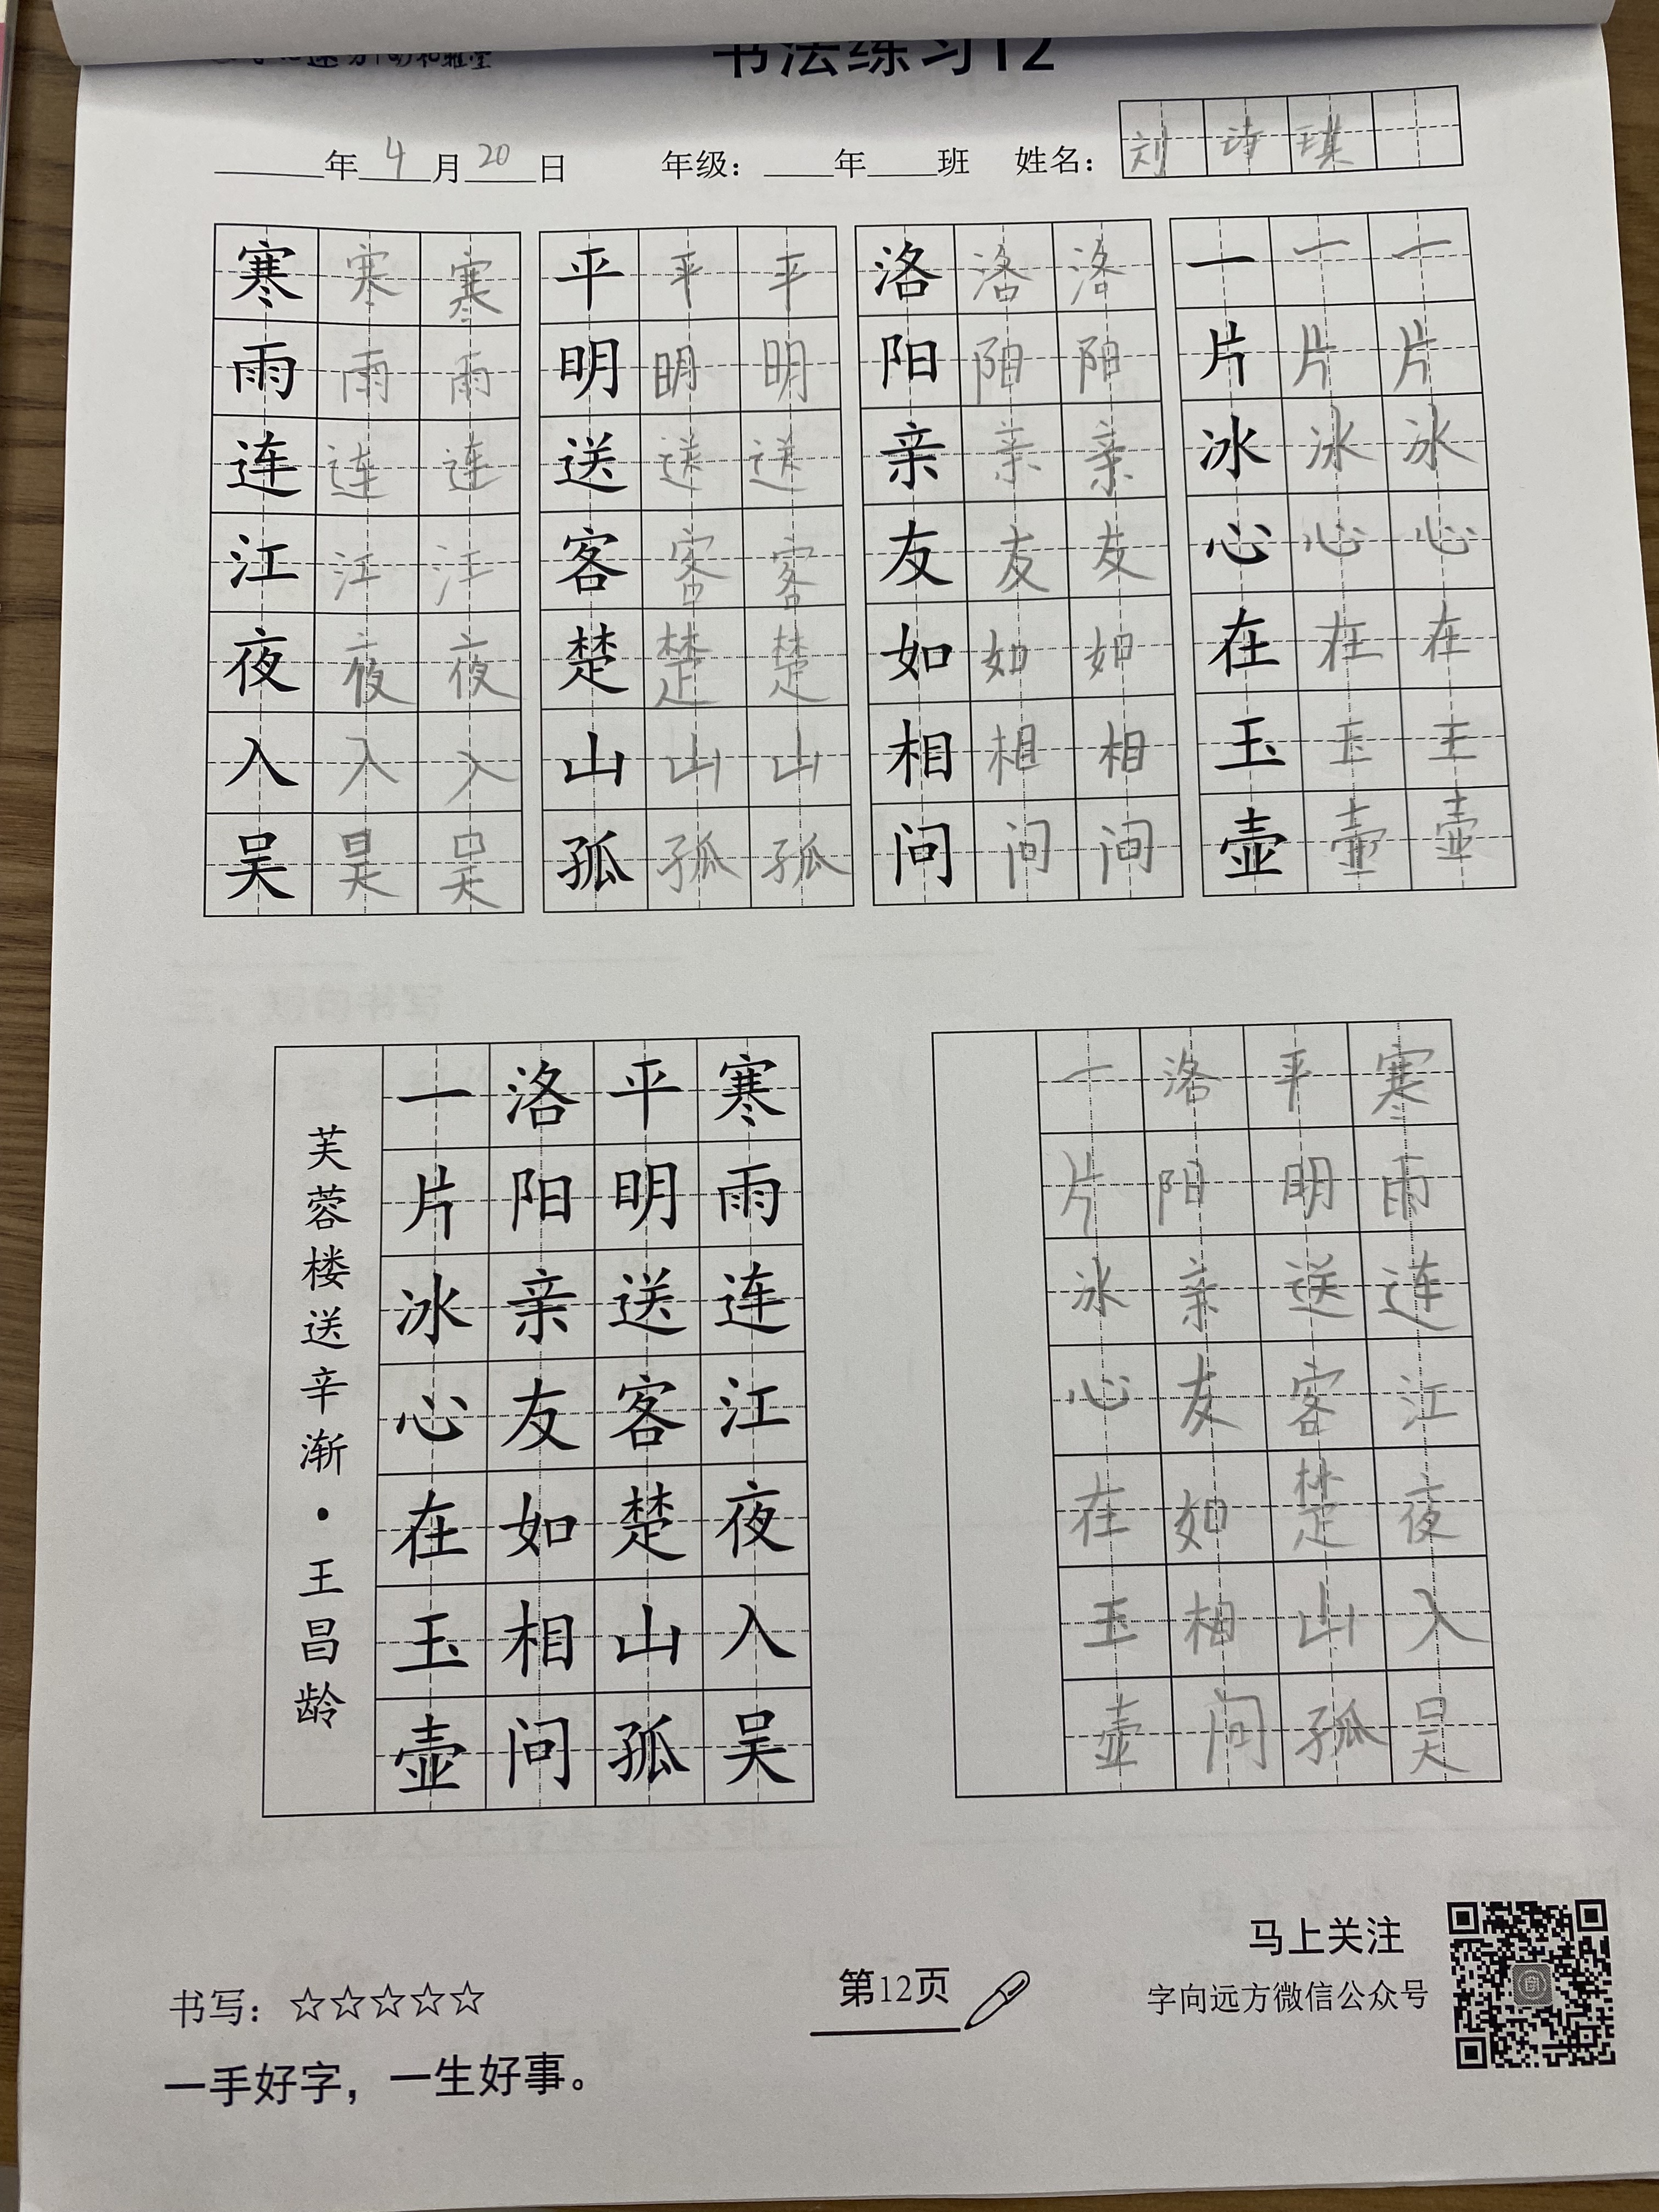 书法练习12
年 4 月 20 日 年级： 年 班 姓名： 刘诗琪
寒 寒 寒 平 平 平 洛 洛 洛 一 一 一
雨 雨 雨 明 明 明 阳 阳 阳 片 片 片
连 连 连 送 送 送 亲 亲 亲 冰 冰 冰
江 江 江 客 客 客 友 友 友 心 心 心
夜 夜 夜 楚 楚 楚 如 如 如 在 在 在
入 入 入 山 山 山 相 相 相 玉 玉 玉
吴 吴 吴 孤 孤 孤 问 问 问 壶 壶 壶
寒雨连江夜入吴
平明送客楚山孤
洛阳亲友如相问
一片冰心在玉壶
芙蓉楼送辛渐·王昌龄
寒雨连江夜入吴
平明送客楚山孤
洛阳亲友如相问
一片冰心在玉壶
书写：☆☆☆☆☆
一手好字，一生好事。
第12页
马上关注
字向远方微信公众号